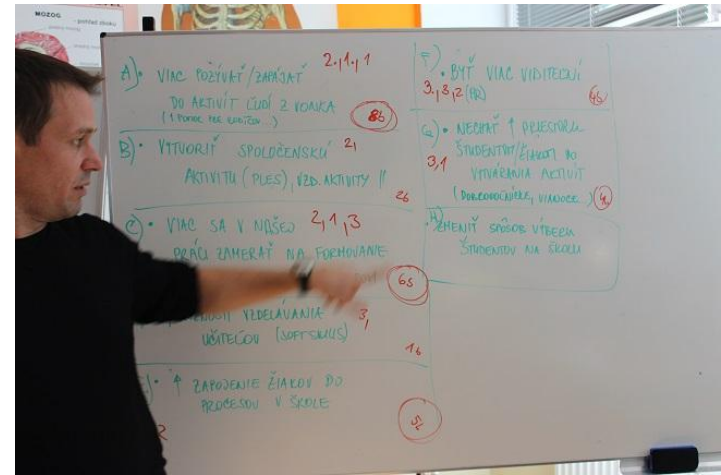 MOZOG
- pohľad zboku
A) • VIAC POZÝVAŤ/ZAPÁJAŤ 2,1,1
DO AKTIVÍT ĽUDÍ Z VONKA
8b
B) • VYTVORIŤ SPOLOČENSKÚ 2,
AKTIVITU (PLES), VZD. AKTIVITY //
2b
C) • VIAC SA V NAŠEJ 2,1,3
PRÁCI ZAMERAŤ NA FORMOVANIE
6b
VZDELÁVANIA 3,
UČITEĽOV (SOFTSKILLS)
1b
E) • ↑ ZAPOJENIE ŽIAKOV DO
PROCESOV V ŠKOLE
F) • BYŤ VIAC VIDITEĽNÍ
3,3,2 (PR)
G) • NECHAŤ ↑ PRIESTORU
3,1 ŠTUDENTOV/ŽIAKOV DO
VYTVÁRANIA AKTIVÍT
4b
H) ZMENIŤ SPÔSOB VÝBERU
ŠTUDENTOV NA ŠKOLU